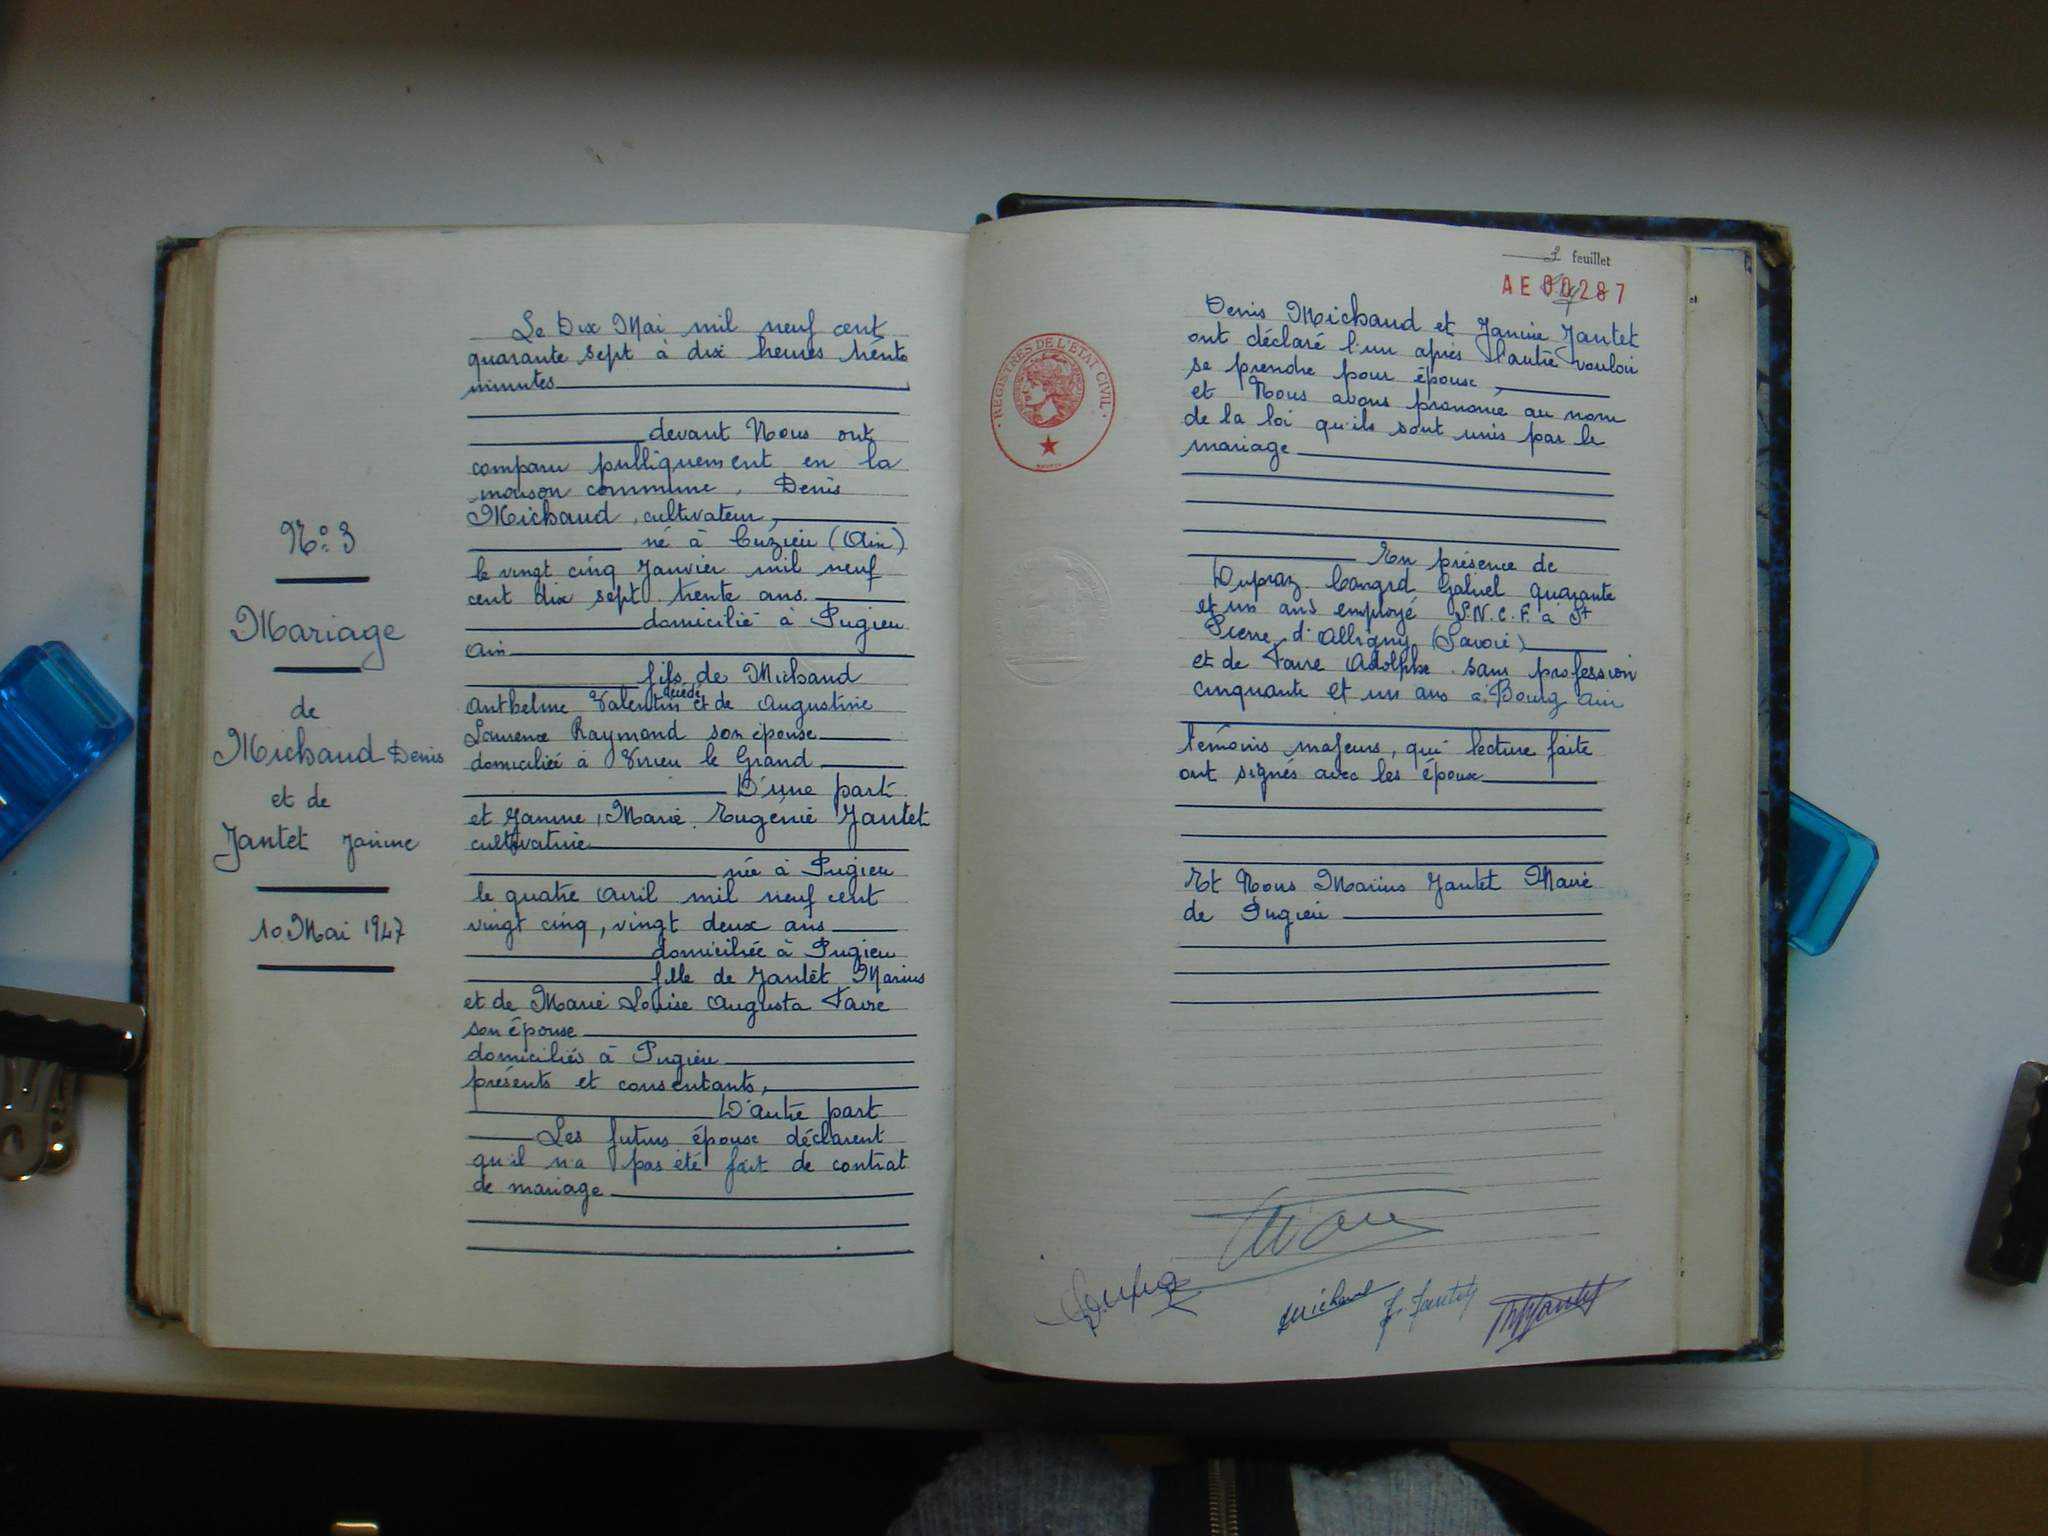 N° 3
Mariage
de
Michaud Denis
et de
Jantet Janine
10 Mai 1947
Le Dix Mai mil neuf cent
quarante sept à dix heures trente
minutes
devant Nous ont
comparu publiquement en la
maison commune, Denis
Michaud, cultivateur,
né à Cuzieu (Ain)
le vingt cinq Janvier mil neuf
cent dix sept. trente ans.
domicilié à Pugieu
Ain
fils de Michaud
décédé
Anthelme Valentin et de Augustine
Laurence Raymond son épouse
domiciliée à Virieu le Grand
D'une part
et Janine, Marie, Eugénie Jantet
cultivatrice
née à Pugieu
le quatre Avril mil neuf cent
vingt cinq, vingt deux ans
domiciliée à Pugieu
fille de Jantet Marius
et de Marie Louise Augusta Favre
son épouse
domiciliés à Pugieu
présents et consentants,
D'autre part
Les futurs épouse déclarent
qu'il n'a pas été fait de contrat
de mariage
3 feuillet
AE 00287
REGISTRES DE L'ETAT CIVIL
Denis Michaud et Janine Jantet
ont déclaré l'un après l'autre vouloir
se prendre pour épouse,
et Nous avons prononcé au nom
de la loi qu'ils sont unis par le
mariage
En présence de
Dupraz Gabriel quarante
et un ans employé S.N.C.F. à St
Pierre d'Albigny (Savoie)
et de Favre Adolphe sans profession
cinquante et un ans à Bourg Ain
témoins majeurs, qui lecture faite
ont signés avec les époux
Et Nous Marius Jantet Maire
de Pugieu
Michaud
J. Jantet
M Jantet